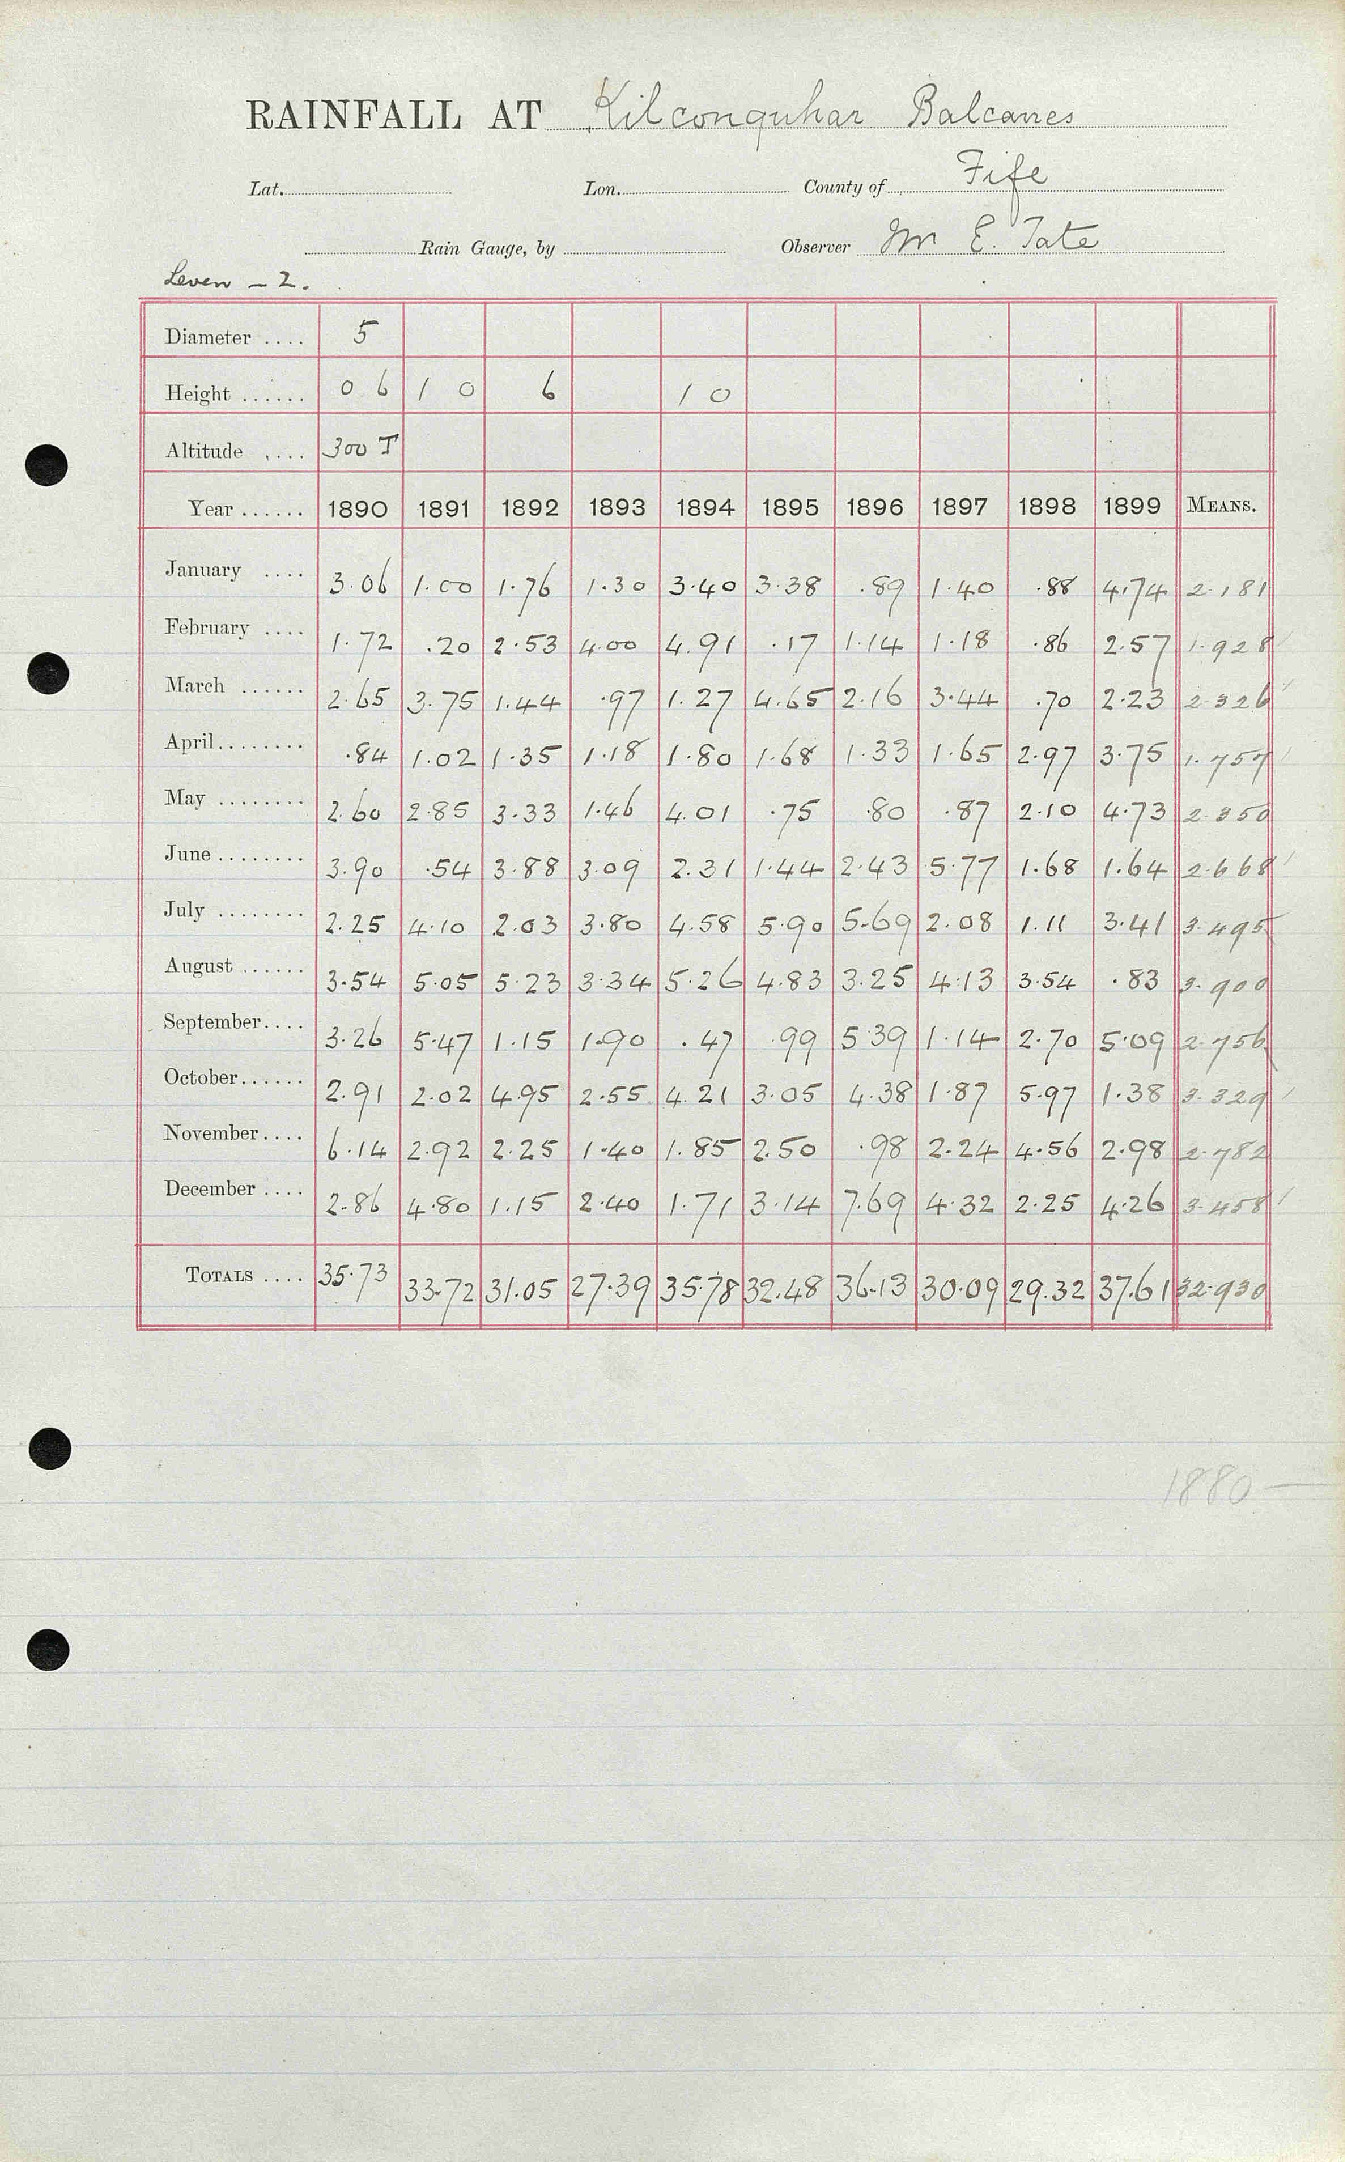 RAINFALL AT Kilconquhar Balcarres
Lat. Lon. County of Fife
Rain Gauge, by Observer Mr E. Tate
Leven - 2.
Diameter .... 5
Height ...... 0 6 1 0 6 1 0
Altitude .... 300 T
Year ...... 1890 1891 1892 1893 1894 1895 1896 1897 1898 1899 MEANS.
January .... 3.06 1.00 1.76 1.30 3.40 3.38 .89 1.40 .88 4.74 2.181
February .... 1.72 .20 2.53 4.00 4.91 .17 1.14 1.18 .86 2.57 1.928
March ...... 2.65 3.75 1.44 .97 1.27 4.65 2.16 3.44 .70 2.23 2.326
April........ .84 1.02 1.35 1.18 1.80 1.68 1.33 1.65 2.97 3.75 1.757
May ........ 2.60 2.85 3.33 1.46 4.01 .75 .80 .87 2.10 4.73 2.350
June ........ 3.90 .54 3.88 3.09 2.31 1.44 2.43 5.77 1.68 1.64 2.668
July ........ 2.25 4.10 2.03 3.80 4.58 5.90 5.69 2.08 1.11 3.41 3.495
August ...... 3.54 5.05 5.23 3.34 5.26 4.83 3.25 4.13 3.54 .83 3.900
September.... 3.26 5.47 1.15 1.90 .47 .99 5.39 1.14 2.70 5.09 2.756
October...... 2.91 2.02 4.95 2.55 4.21 3.05 4.38 1.87 5.97 1.38 3.329
November.... 6.14 2.92 2.25 1.40 1.85 2.50 .98 2.24 4.56 2.98 2.782
December .... 2.86 4.80 1.15 2.40 1.71 3.14 7.69 4.32 2.25 4.26 3.458
TOTALS .... 35.73 33.72 31.05 27.39 35.78 32.48 36.13 30.09 29.32 37.61 32.930
1880 —